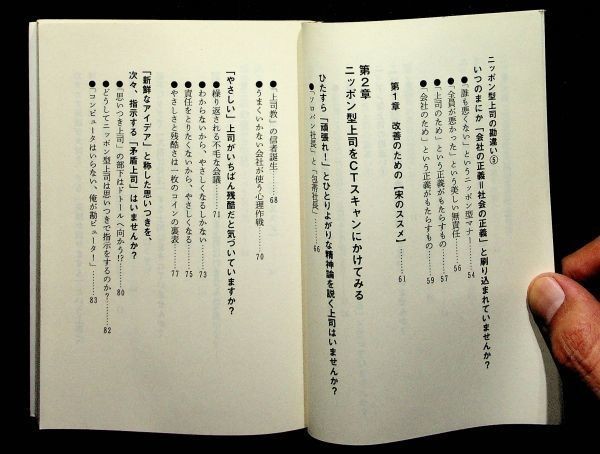 ニッポン型上司の勘違い⑤
いつのまにか「会社の正義=社会の正義」と刷り込まれていませんか?
●「誰も悪くない」というニッポン型マナー……54
●「全員が悪かった」という美しい無責任……56
●「上司のため」という正義がもたらすもの……57
●「会社のため」という正義がもたらすもの……59
第1章 改善のための【宋のススメ】……61
第2章
ニッポン型上司をCTスキャンにかけてみる
ひたすら「頑張れ!」とひとりよがりな精神論を説く上司はいませんか?
●「ソロバン社長」と「包帯社長」……66
●「上司教」の信者誕生……68
●うまくいかない会社が使う心理作戦……70
「やさしい」上司がいちばん残酷だと気づいていますか?
●繰り返される不毛な会議……71
●わからないから、やさしくなるしかない……73
●責任をとりたくないから、やさしくなる……75
●やさしさと残酷さは一枚のコインの裏表……77
「新鮮なアイデア」と称した思いつきを、
次々、指示する「矛盾上司」はいませんか?
●「思いつき上司」の部下はドトールへ向かう!?……80
●どうしてニッポン型上司は思いつきで指示をするのか?……82
●「コンピュータはいらない、俺が勘ピュータ!」……83